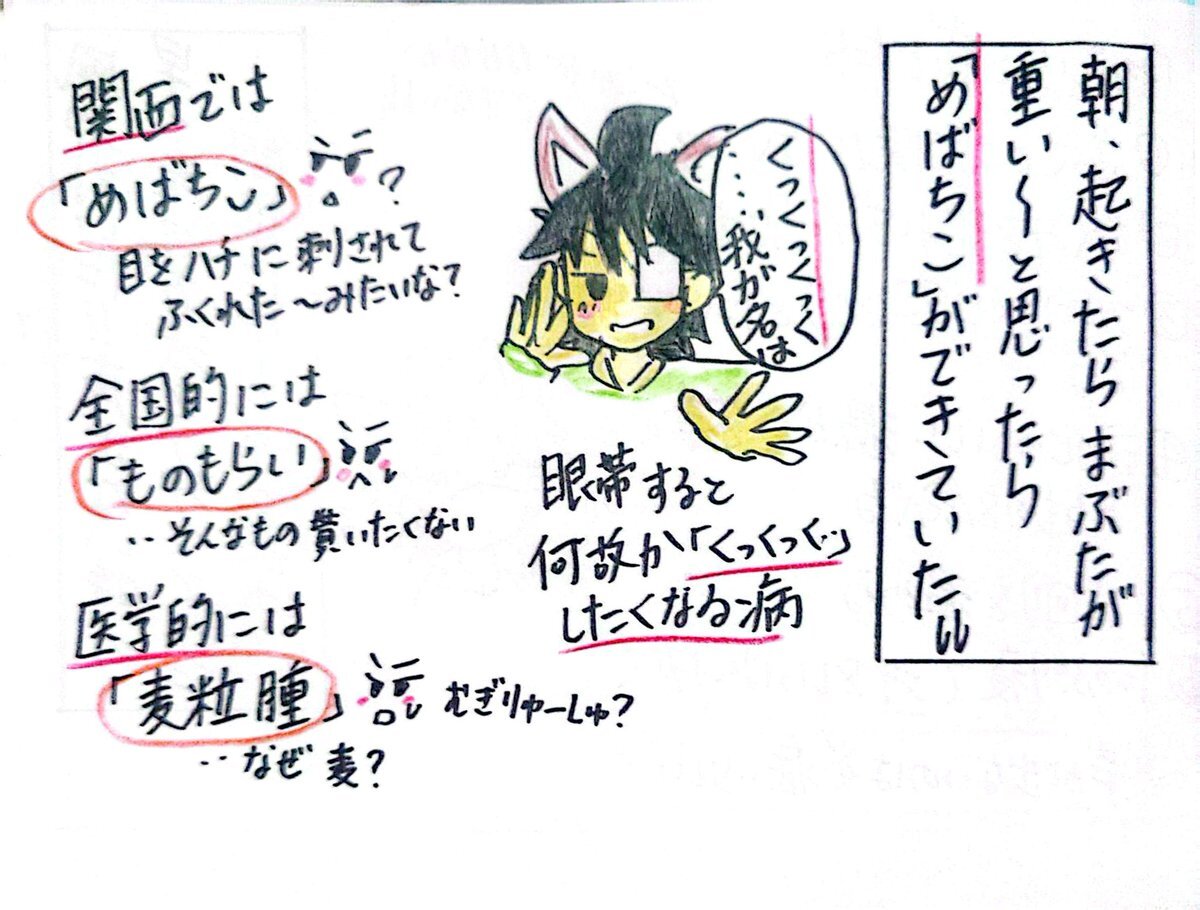 朝、起きたらまぶたが
重い〜と思ったら
「めばちこ」ができていた
くっくっくっく
....我が名は
眼帯すると
何故か「くっくっく…」
したくなる病
関西では
「めばちこ」?
目をハチに刺されて
ふくれた〜みたいな?
全国的には
「ものもらい」
..そんなもの貰いたくない
医学的には
「麦粒腫」むぎりゅーしゅ?
..なぜ麦?